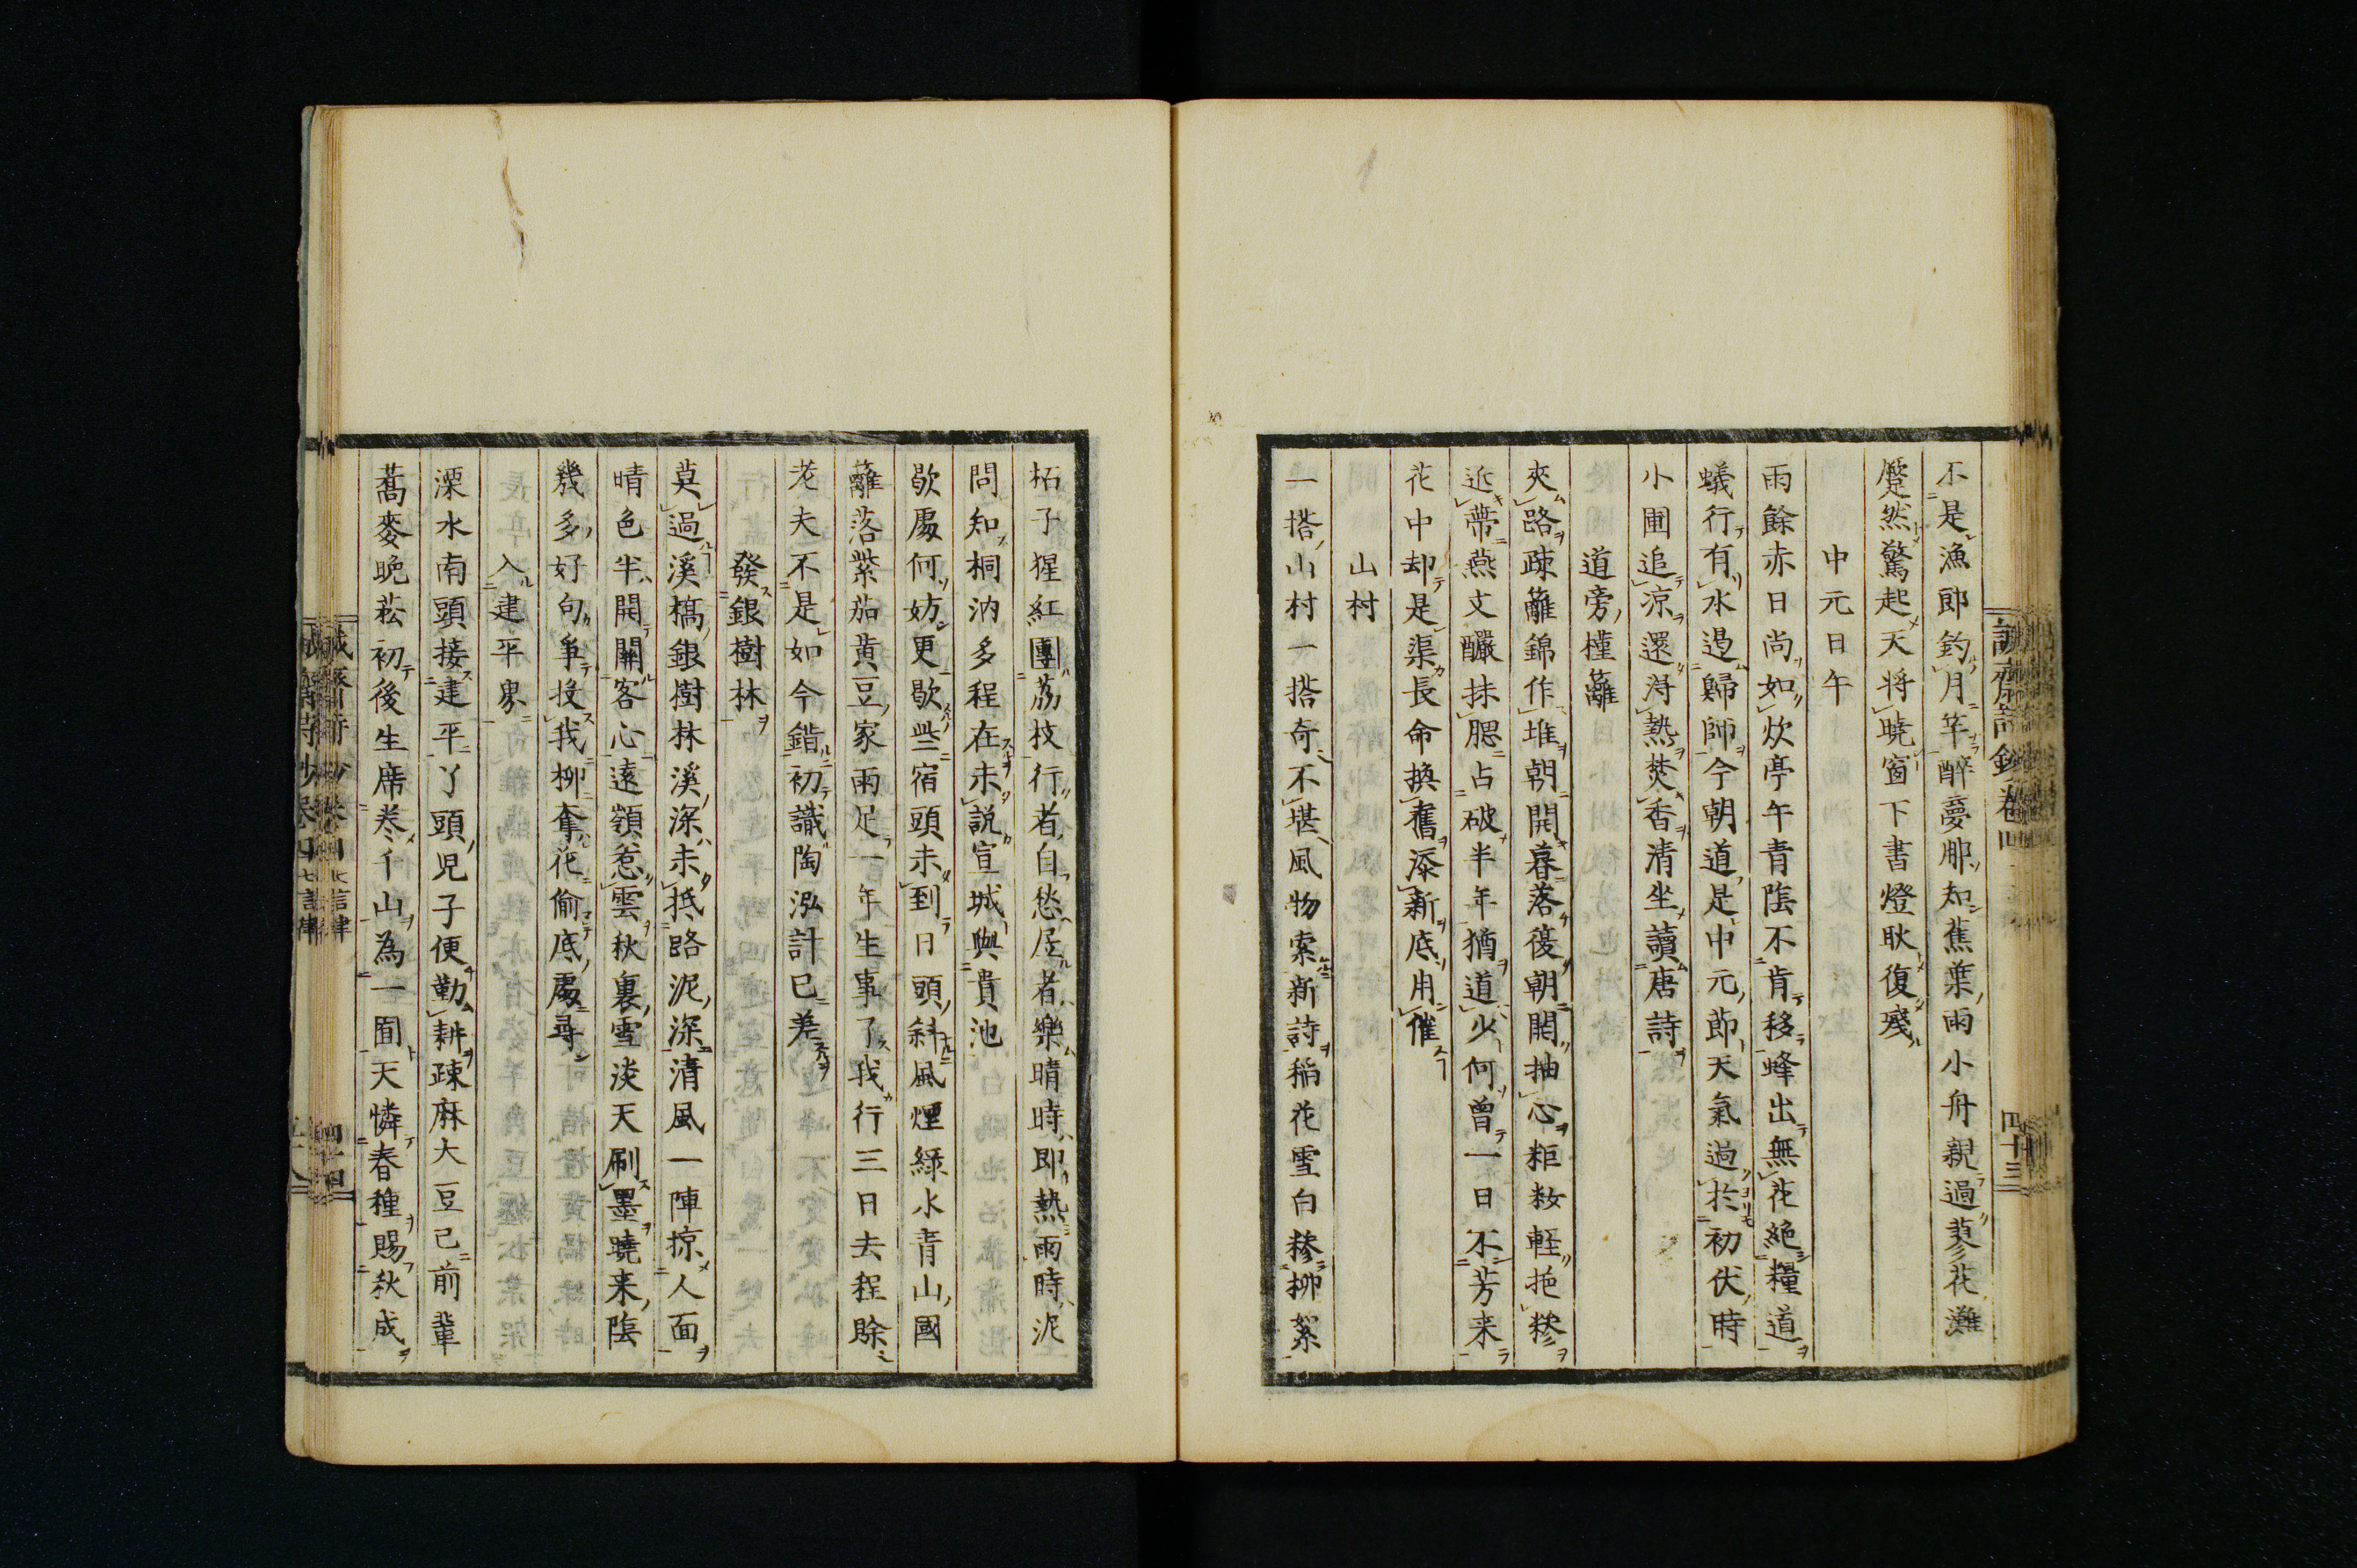 不是漁郎釣月竿醉夢那知蕉葉雨小舟親過蓼花灘
蘧然驚起天将曉窗下書燈耿復殘
中元日午
雨餘赤日尚如炊亭午青陰不肯移蜂出無花絶糧道
蟻行有水遏歸師今朝道是中元節天氣過於初伏時
小圃追凉還得熱焚香清坐讀唐詩
道旁槿籬
夾路疎籬錦作堆朝開暮落復朝開抽心粔籹軽拖糝
近蔕燕支釅抹腮占破半年猶道少何曾一日不芳来
花中却是渠長命換舊添新底用催
山村
一搭山村一搭奇不堪風物索新詩稲花雪白糝柳絮
柘子猩紅團荔枝行者自愁居者樂晴時即熱雨時泥
問知桐汭多程在未説宣城與貴池
歇處何妨更歇些宿頭未到日頭斜風煙緑水青山國
籬落紫茄黄豆家雨足一年生事了我行三日去程賖
老夫不是如今錯初識陶泓計已差
發銀樹林
莫過溪橋銀樹林溪深未抵路泥深清風一陣掠人面
晴色半開關客心遠嶺惹雲秋裏雪淡天刷墨曉来陰
幾多好句争投我柳奪花偷底處尋
入建平界
溧水南頭接建平丫頭兒子便勤耕疎麻大豆已前輩
蕎麥晩菘初後生席卷千山為一囿天憐春種賜秋成
誠齋詩鈔卷四
四十三